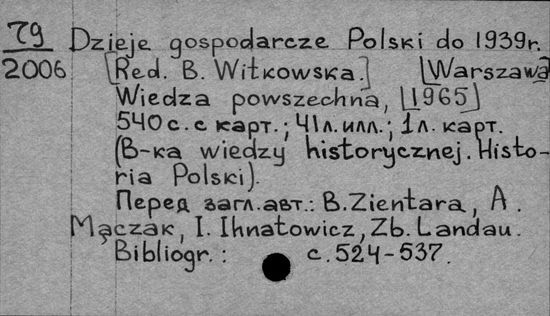 79 Dzieje gospodarcze Polski do 1939r.
2006 [Red. B. Witkowska.] [Warszawa]
Wiedza powszechna, [1965]
540 с. с карт.; 41л. илл.; 1л. карт.
(B-ka wiedzy historycznej. Histo-
ria Polski).
Перед загл. авт.: B. Zientara, A.
Mączak, I. Ihnatowicz, Zb. Landau.
Bibliogr.: с. 524-537.